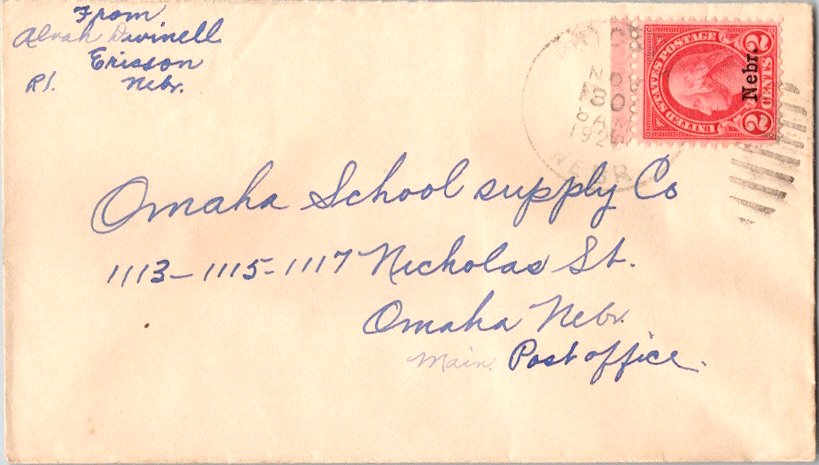 From
Alvah Dwinell
Ericson
R1. Nebr.
NOV
30
8 AM
NEBR
UNITED STATES POSTAGE
2 CENTS 2
Nebr.
Omaha School supply Co
1113-1115-1117 Nicholas St.
Omaha Nebr.
Main Post office.